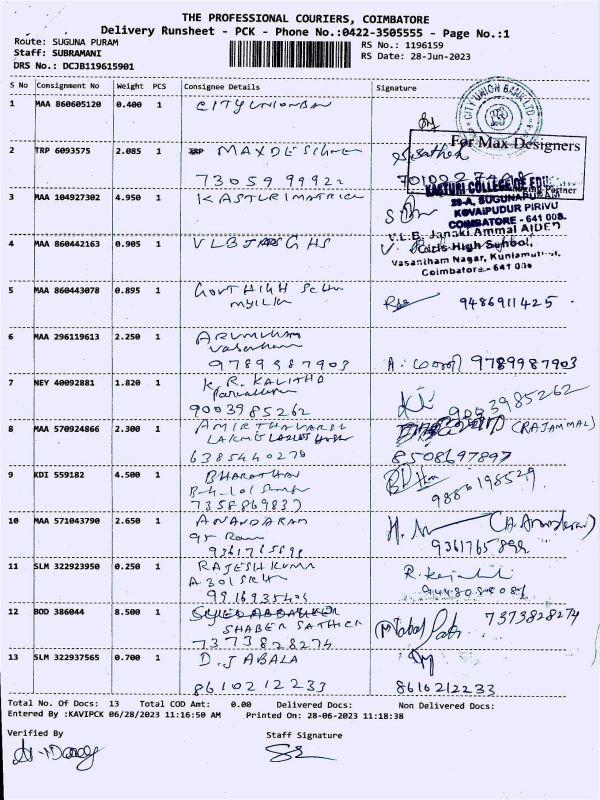 THE PROFESSIONAL COURIERS, COIMBATORE
Delivery Runsheet - PCK - Phone No.:0422-3505555 - Page No.:1
Route: SUGUNA PURAM
RS No.: 1196159
Staff: SUBRAMANI
RS Date: 28-Jun-2023
DRS No.: DCJB119615901
S No Consignment No Weight PCS Consignee Details Signature
1 MAA 860605120 0.400 1 CITY UNION BAN
CITY UNION BANK LTD
For Max Designers
2 TRP 6093575 2.085 1 MAX DESIGNER
73059 99922
Partner
3 MAA 104927302 4.950 1 KASTURI MATRIC
KASTURI COLLEGE OF EDU
29-A, SUGUNAPURAM
KOVAIPUDUR PIRIVU
COIMBATORE - 641 008.
4 MAA 860442163 0.905 1 VLB JANS GHS
V.L.B. Janaki Ammal AIDED
Girls High School,
Vasantham Nagar, Kuniamut
Coimbatore - 641 008
5 MAA 860443078 0.895 1 GOVT HIGH SCH
9486911425
6 MAA 296119613 2.250 1 ARUMUKAM
9789987903
9789987903
7 NEY 40092881 1.820 1 K.R. KAVITHA
9003985262
9003985262
8 MAA 570924866 2.300 1 AMIRTHAVARSI
6385440276
(RAJAMMAL)
8508697897
9 KDI 559182 4.500 1 BHARATHAN
7358869837
10 MAA 571043790 2.650 1 ANANDARAM
11 SLM 322923950 0.250 1 RAJESH KUMA
12 BOD 386044 8.500 1
SHABER SATHICK
7373828274
7373828274
13 SLM 322937565 0.700 1 D. JABALA
8610212233
8610212233
Total No. Of Docs: 13 Total COD Amt: 0.00 Delivered Docs: Non Delivered Docs:
Entered By :KAVIPCK 06/28/2023 11:16:50 AM Printed On: 28-06-2023 11:18:38
Verified By
Staff Signature